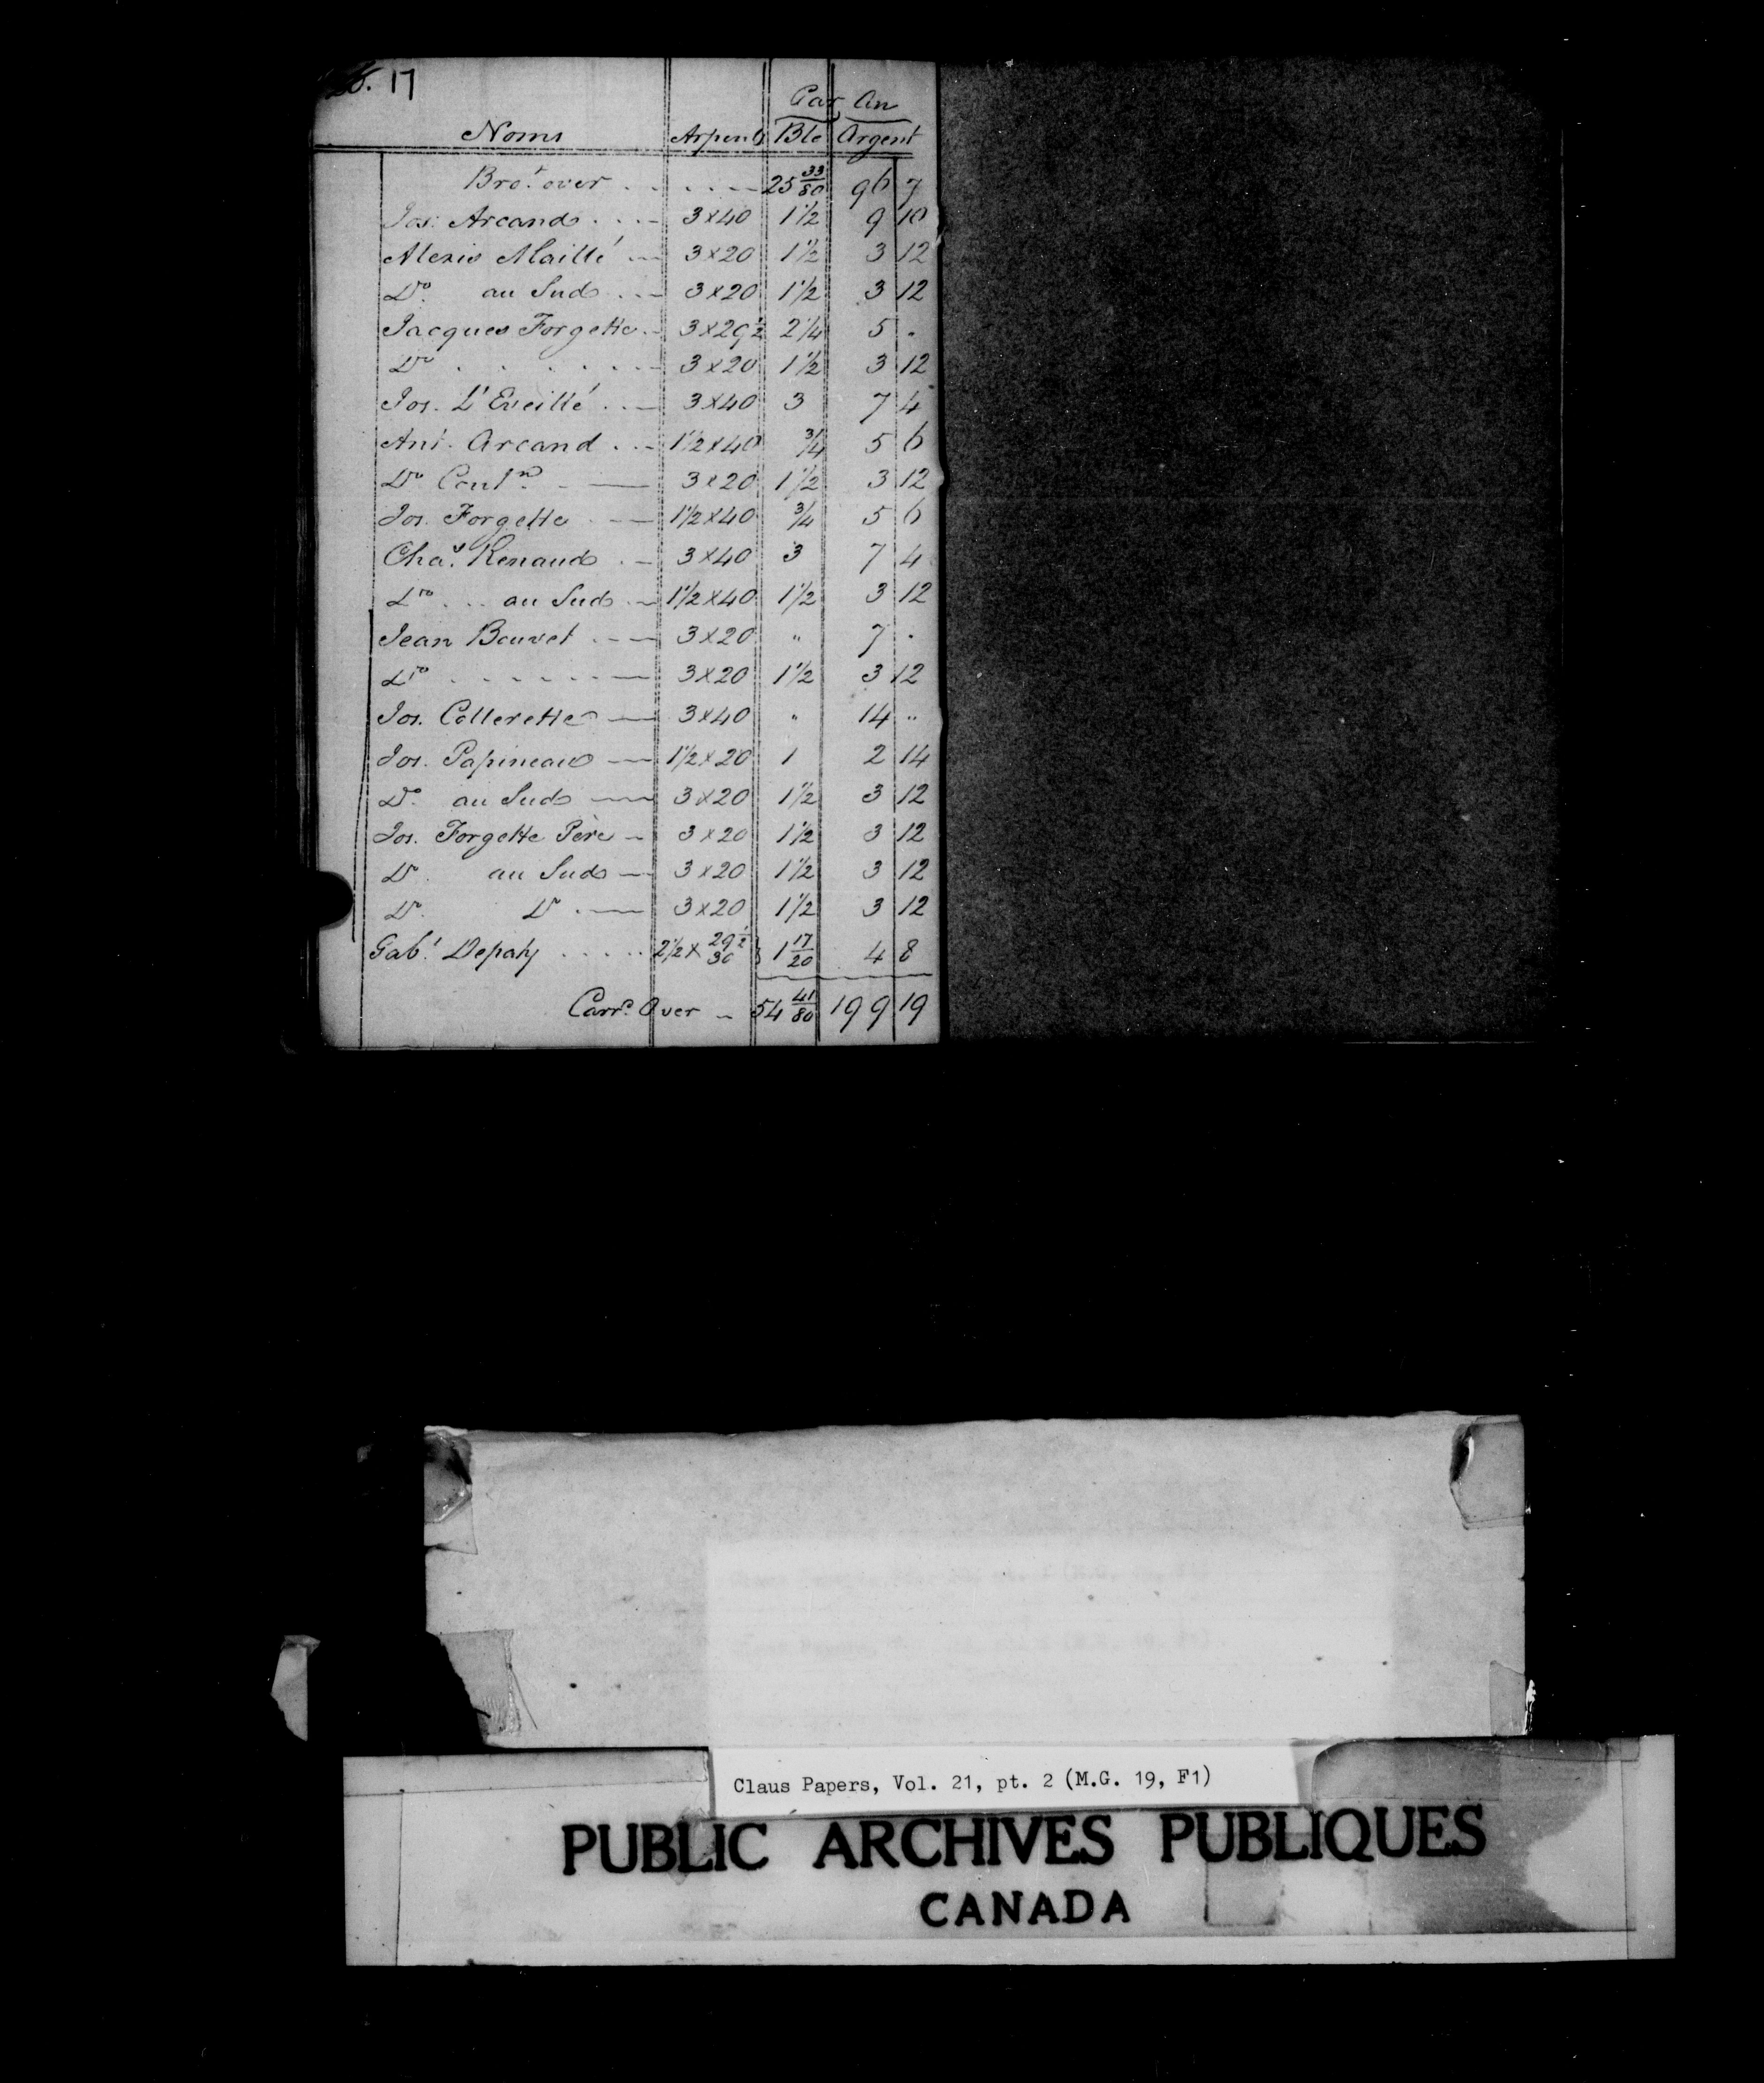 17
Par An
Noms Arpents Blé Argent
Bro.t over . . . . . 25 33/80 96 7
Jos: Arcand . . . 3x40 1 1/2 9 10
Alexis Maillé . . 3x20 1 1/2 3 12
Do. au Sud . . . 3x20 1 1/2 3 12
Jacques Forgette . . 3x29 1/2 2 1/4 5 "
Do . . . . . . 3x20 1 1/2 3 12
Jos. L'Eveillé . . 3x40 3 7 4
Ant. Arcand . . . 1 1/2x40 3/4 5 6
Do Contn. . — 3x20 1 1/2 3 12
Jos. Forgette . — 1 1/2x40 3/4 5 6
Chas. Renaud . — 3x40 3 7 4
Do . . au Sud . — 1 1/2x40 1 1/2 3 12
Jean Bouvet . — 3x20 " 7 "
Do . . . . . . — 3x20 1 1/2 3 12
Jos. Collerette — 3x40 " 14 "
Jos. Papineau — 1 1/2x20 1 2 14
Do. au Sud — 3x20 1 1/2 3 12
Jos. Forgette Père — 3x20 1 1/2 3 12
Do. au Sud — 3x20 1 1/2 3 12
Do. Do . — 3x20 1 1/2 3 12
Gab.l Depaty . . . . . 2 1/2x 29 1/2 30 } 1 17/20 4 8
Carrd. Over — 54 41/80 199 19
Claus Papers, Vol. 21, pt. 2 (M.G. 19, F1)
PUBLIC ARCHIVES PUBLIQUES
CANADA